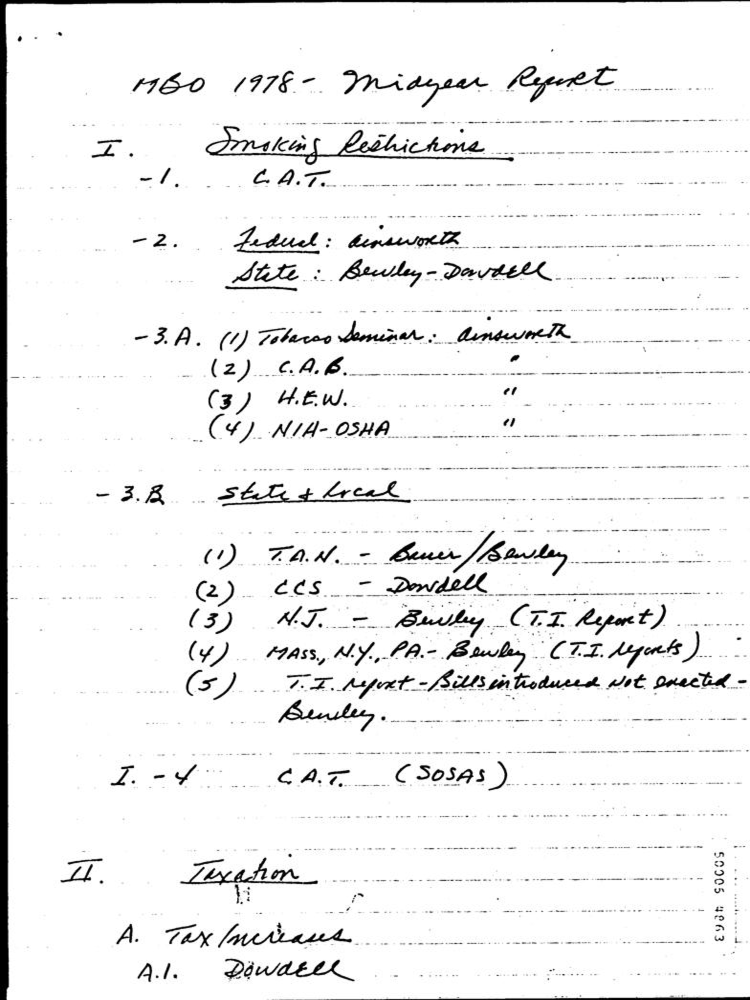 MBO 1978 - Midyear Report
I. Smoking Restrictions
-1. C.A.T.
-2. Federal: Ainsworth
State: Bewley-Dowdell
-3.A. (1) Tobacco Seminar: Ainsworth
(2) C.A.B. "
(3) H.E.W. "
(4) NIH-OSHA "
-3.B State & Local
(1) T.A.N. - /Bewley
(2) CCS - Dowdell
(3) N.J. - Bewley (T.I. Report)
(4) Mass., N.Y., PA. - Bewley (T.I. reports)
(5) T.I. report - Bills introduced not enacted -
Bewley.
I. -4 C.A.T. (SOSAS)
II. Taxation
A. Tax Increases
A.1. Dowdell